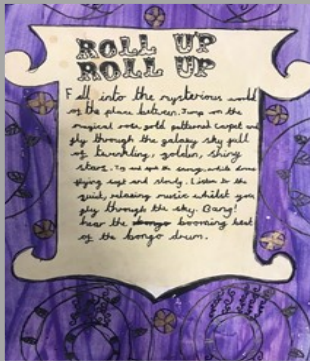 ROLL UP
ROLL UP
Fall into the mysterious world
of the place between. Jump on the
magical rose gold patterned carpet and
fly through the galaxy sky full
of twinkling, golden, shiny
stars. Try and spot the swing, while
flying high and slowly. Listen to the
quiet, relaxing music whilst you
fly through the sky. Bang!
hear the booming beat
of the bongo drum.